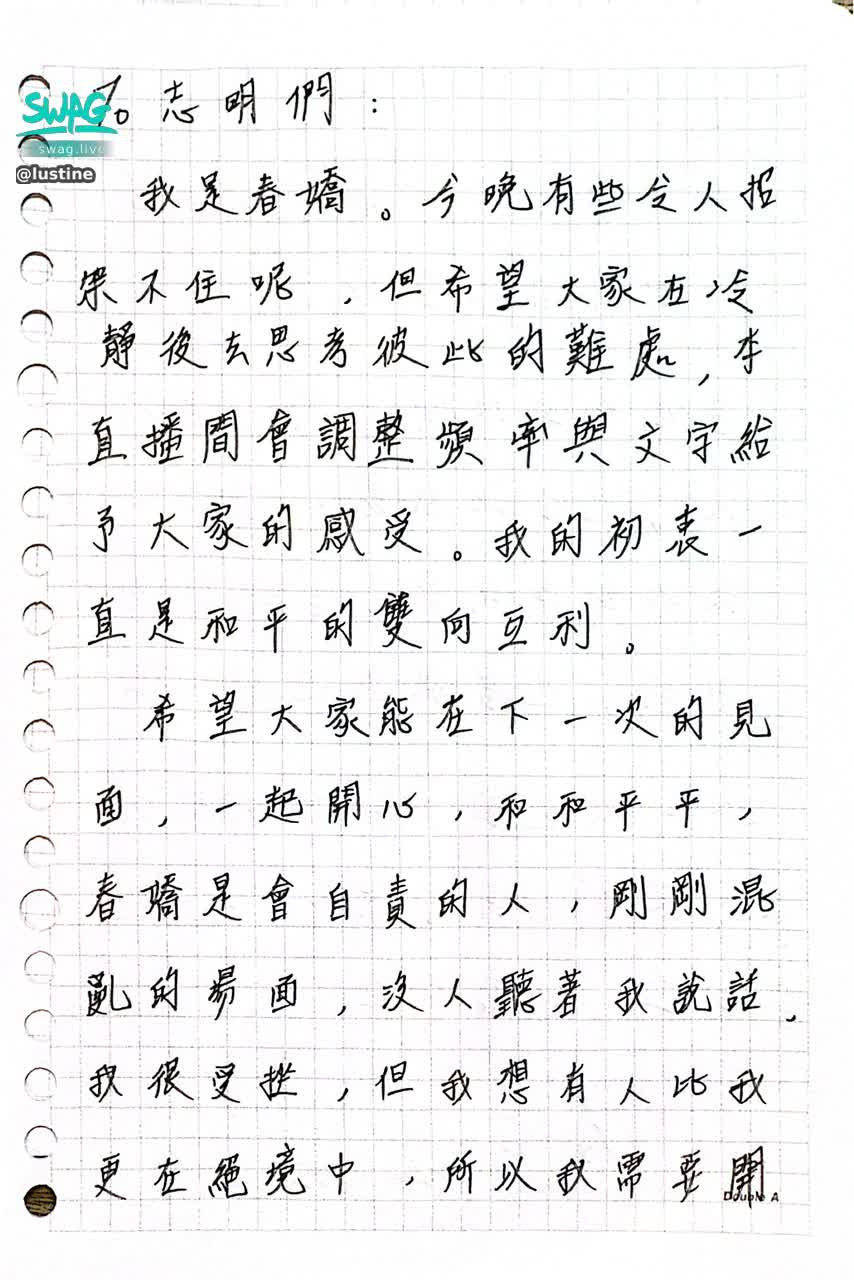 SWAG
swag.live
@lustine
To 志明們：
我是春嬌。今晚有些令人招
架不住呢，但希望大家在冷
靜後去思考彼此的難處，本
直播間會調整頻率與文字給
予大家的感受。我的初衷一
直是和平的雙向互利。
希望大家能在下一次的見
面，一起開心，和和平平，
春嬌是會自責的人，剛剛混
亂的場面，沒人聽著我說話，
我很受挫，但我想有人比我
更在絕境中，所以我需要開
Double A